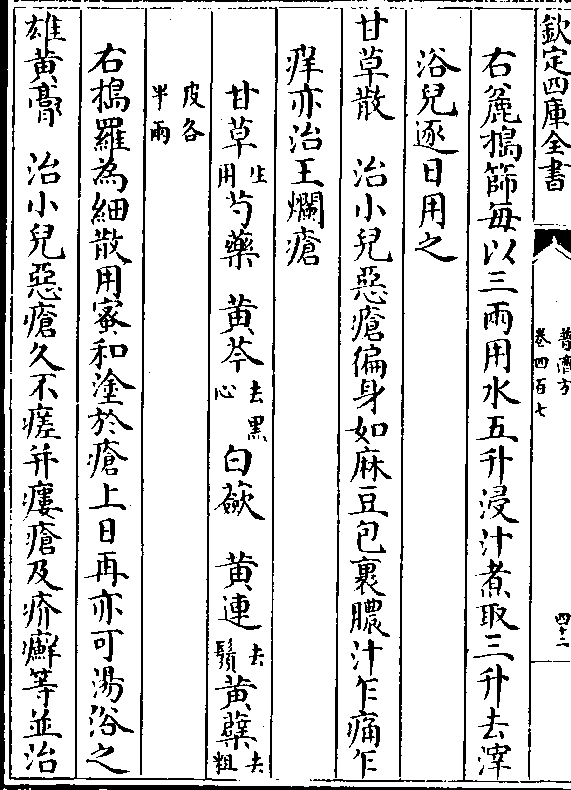 欽定四庫全書
普濟方
卷四百七
四十二
右麄搗篩每以三兩用水五升浸汁煮取三升去滓
浴兒逐日用之
甘草散　治小兒惡瘡徧身如麻豆包裹膿汁乍痛乍
痒亦治王爛瘡
甘草生用芍藥　黃芩去黑心　白蘞　黃連去鬚黃蘗去粗
皮各半兩
右搗羅為細散用蜜和塗於瘡上日再亦可湯浴之
雄黃膏　治小兒惡瘡久不瘥并瘻瘡及疥癬等並治